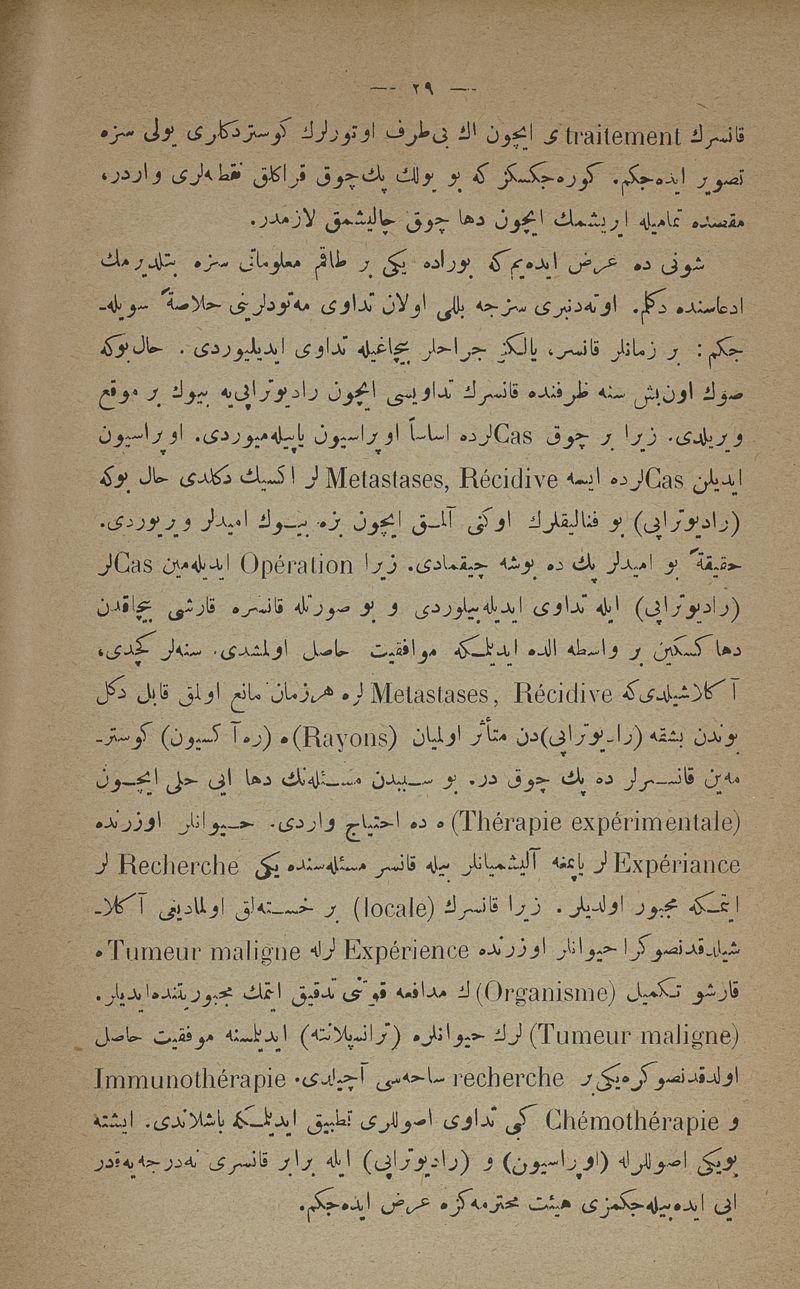 — ٢٩ —
قانسرك traitement ی ایچون اك بی‌طرف اوتورلرك كوستردكلری یولی سزه
تصویر ایده‌جكم. كوره‌جكسكز كه بو یولك پك‌چوق قراكلق نقطه‌لری واردر،
مقصده تمامیله اریشمك ایچون دها چوق چالیشمق لازمدر.
شونی ده عرض ایده‌یم‌كه بوراده یكی بر طاقم معلوماتی سزه بیلدیرمك
ادعاسنده دكلم. اوته‌دنبری سزجه بللی اولان تداوی مه‌تودلرینی خلاصةً سویله‌-
جكم: بر زمانلر قانسر، یالكز جراحلر بیچاغیله تداوی ایدیلیوردی. حال‌بوكه
صوك اون‌بش سنه ظرفنده قانسرك تداویسی ایچون رادیوتراپی‌یه بیوك بر موقع
ویرلدی. زیرا بر چوق Casلرده اساساً اوپراسیون یاپیله‌میوردی. اوپراسیون
ایدیلن Casلرده ایسه Metastases, Récidive لر اكسیك دكلدی حال بوكه
(رادیوتراپی) بو فنالیقلرك اوكنی آلمق ایچون بزه بیوك امیدلر ویریوردی.
حقیقةً بو امیدلر پك ده بوشه چیقمادی. زیرا Opération ایدیله‌مین Casلر
(رادیوتراپی) ایله تداوی ایدیله‌بیلیوردی و بو صورتله قانسره قارشی بیچاقدن
دها كسكین بر واسطه الده ایدیلمكله موافقیت حاصل اولمشدی. سنه‌لر كچدی،
آكلاشیلدی‌كه Metastases, Récidive لره هرزمان مانع اولمق قابل دكل
بوندن بشقه (رادیوتراپی)دن متأثر اولمیان (Rayons)ه (ره‌آكسیون) كوستر-
مه‌ین قانسرلر ده پك چوق در. بو سببدن مسئله‌نك دها ایی حلی ایچون
(Thérapie expérimentale) ه ده احتیاج واردی. حیوانلر اوزرنده
Expériance لر یاپمغه آلیشمیانلر بیله قانسر مسئله‌سنده یكی Recherche لر
ایتمكه مجبور اولدیلر. زیرا قانسرك (locale) بر خسته‌لق اولمادیغی آكلا-
شیلدقدنصوكرا حیوانلر اوزرنده Expérience لرله Tumeur maligne ه
قارشو تكمیل (Organisme) ك مدافعه قوتنی تدقیق ایتمك مجبوریتنده‌ایدیلر.
(Tumeur maligne) لرك حیوانلره (ترانسپلانته) ایدیلمسنه موفقیت حاصل
اولدقدنصوكره‌یكی‌بر recherche ساحه‌سی آچیلدی. Immunothérapie
و Chémothérapie كی تداوی اصوللری تطبیق ایدیلمكه باشلاندی. ایشته
بویكی اصوللرله (اوپراسیون) و (رادیوتراپی) ایله برابر قانسری نه‌درجه‌یه‌قدر
ایی ایده‌بیله‌جكمزی هیئت محترمه‌كزه عرض ایده‌جكم.